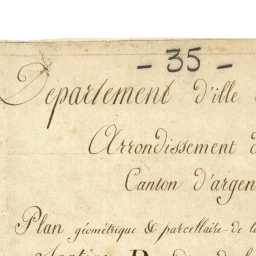 - 35 -
Département d'ille
Arrondissement d
Canton d'argen
Plan géométrique & parcellaire de la